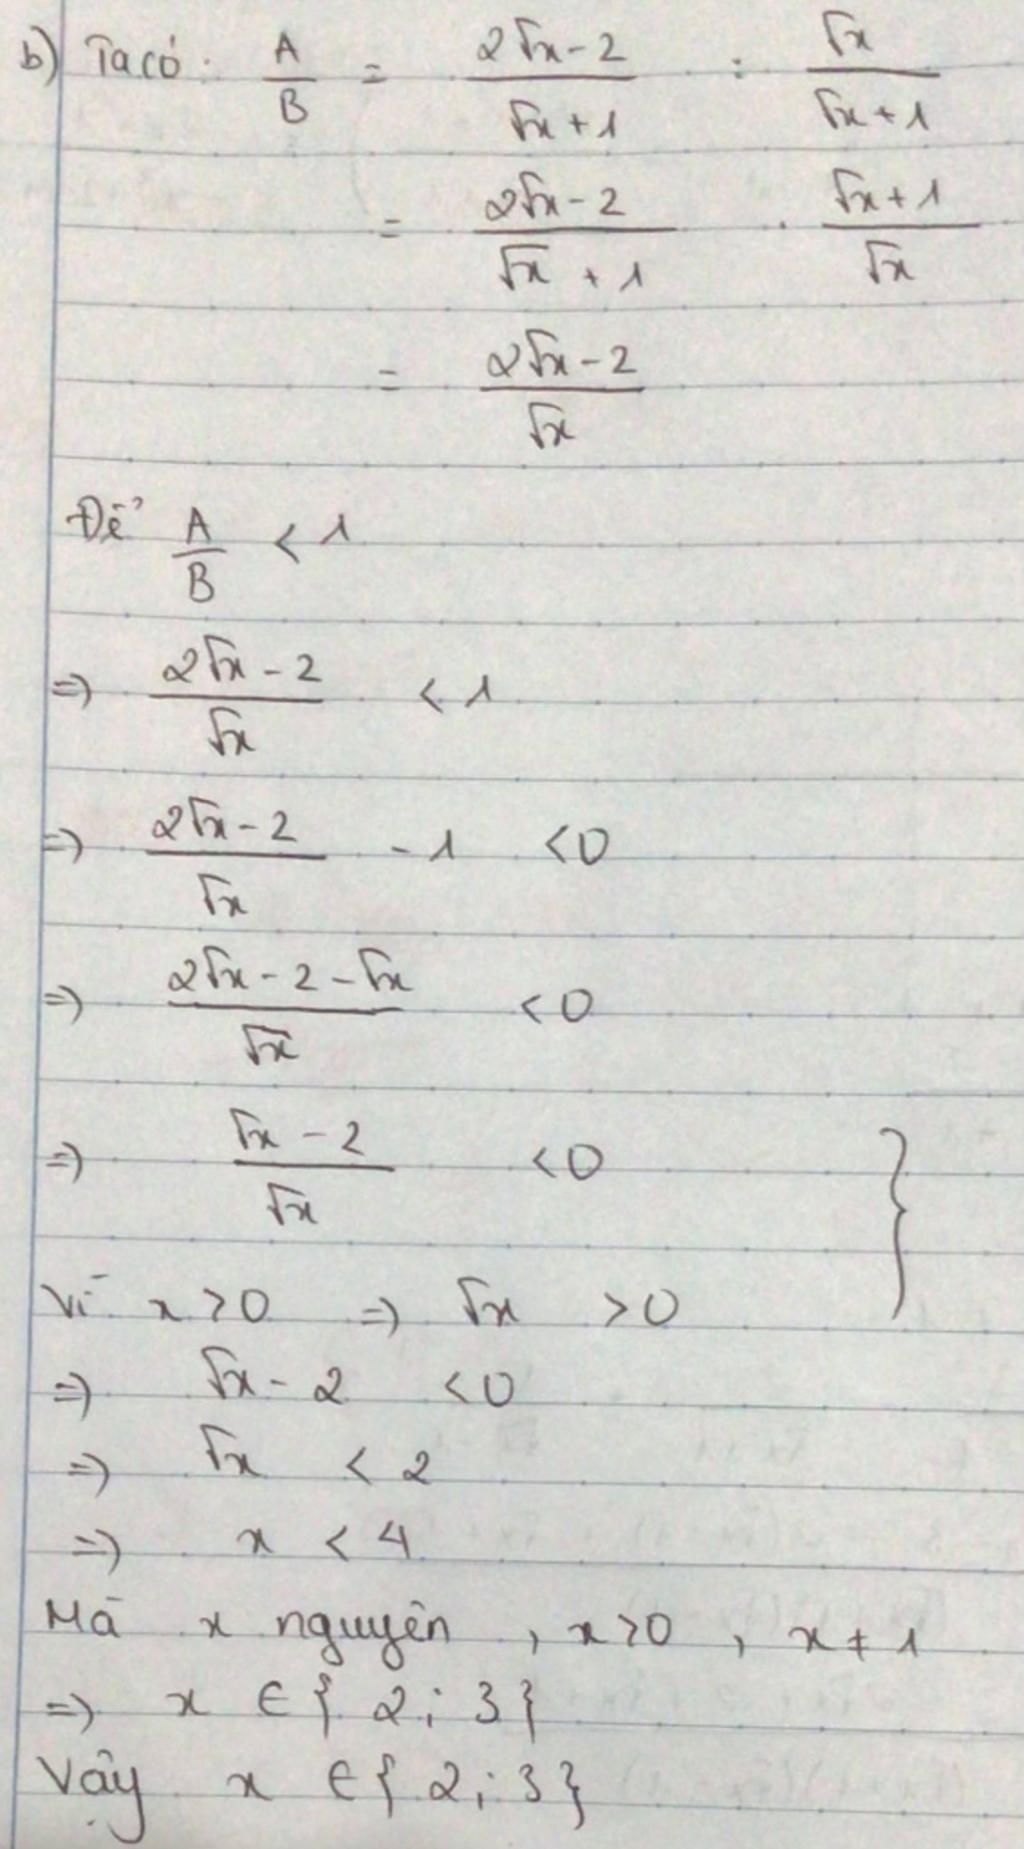 b) Ta có: A/B = (2√x - 2)/(√x + 1) : √x/(√x + 1)
= (2√x - 2)/(√x + 1) . (√x + 1)/√x
= (2√x - 2)/√x
Để A/B < 1
=> (2√x - 2)/√x < 1
=> (2√x - 2)/√x - 1 < 0
=> (2√x - 2 - √x)/√x < 0
=> (√x - 2)/√x < 0 }
Vì x > 0 => √x > 0
=> √x - 2 < 0
=> √x < 2
=> x < 4
Mà x nguyên, x > 0, x ≠ 1
=> x ∈ { 2; 3 }
Vậy x ∈ { 2; 3 }